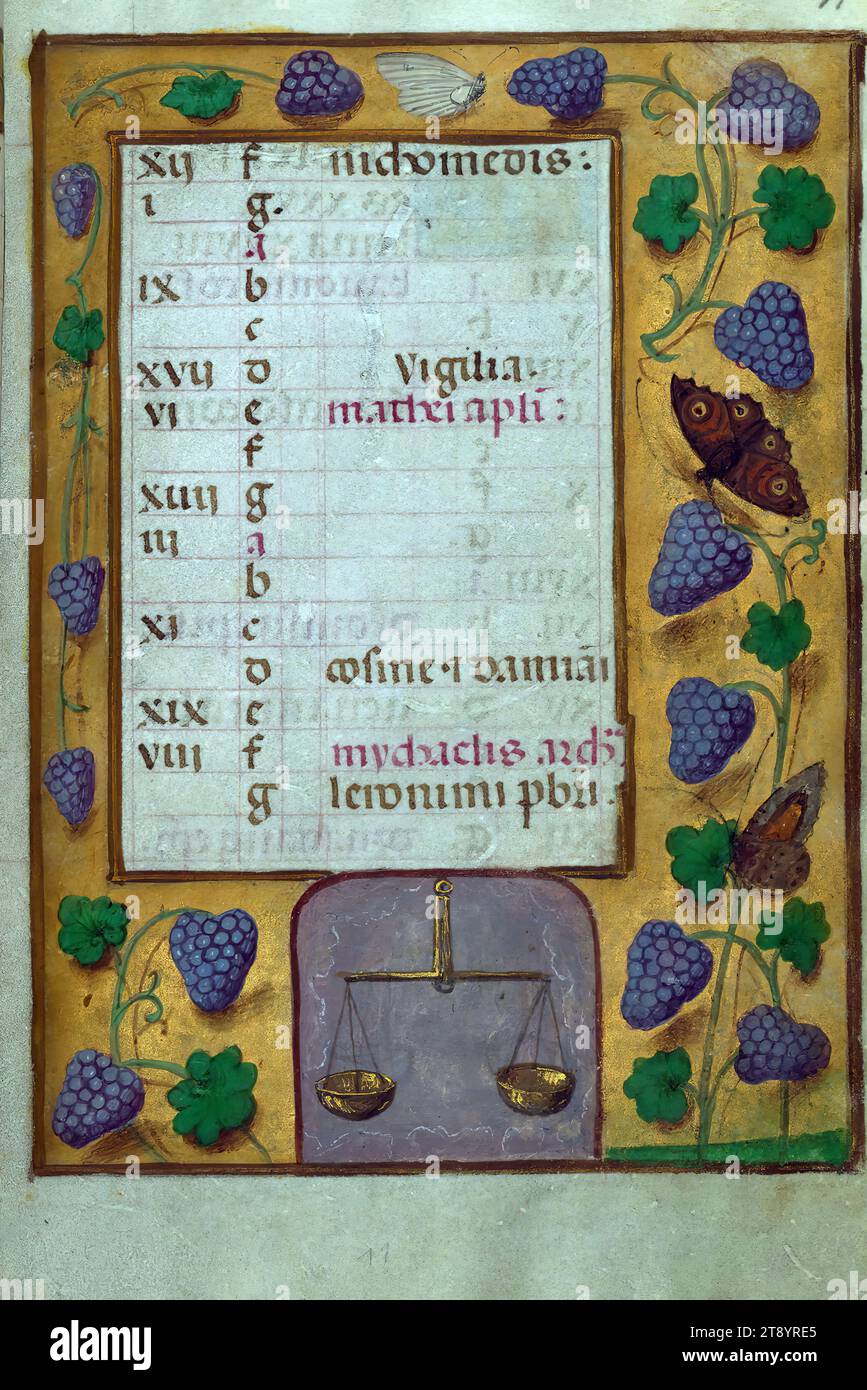 xij f nichomedis:
i g.
a
ix b
c
xvij d Vigilia.
vi e mathei apl̄i:
f
xiiij g
iij a
b
xi c
d cosme ⁊ damiāi
xix e
viij f mychaelis arch̄
g Ieronimi pbr̄i.
11
a alamy
alamy
Image ID: 2T8YRE5
www.alamy.com